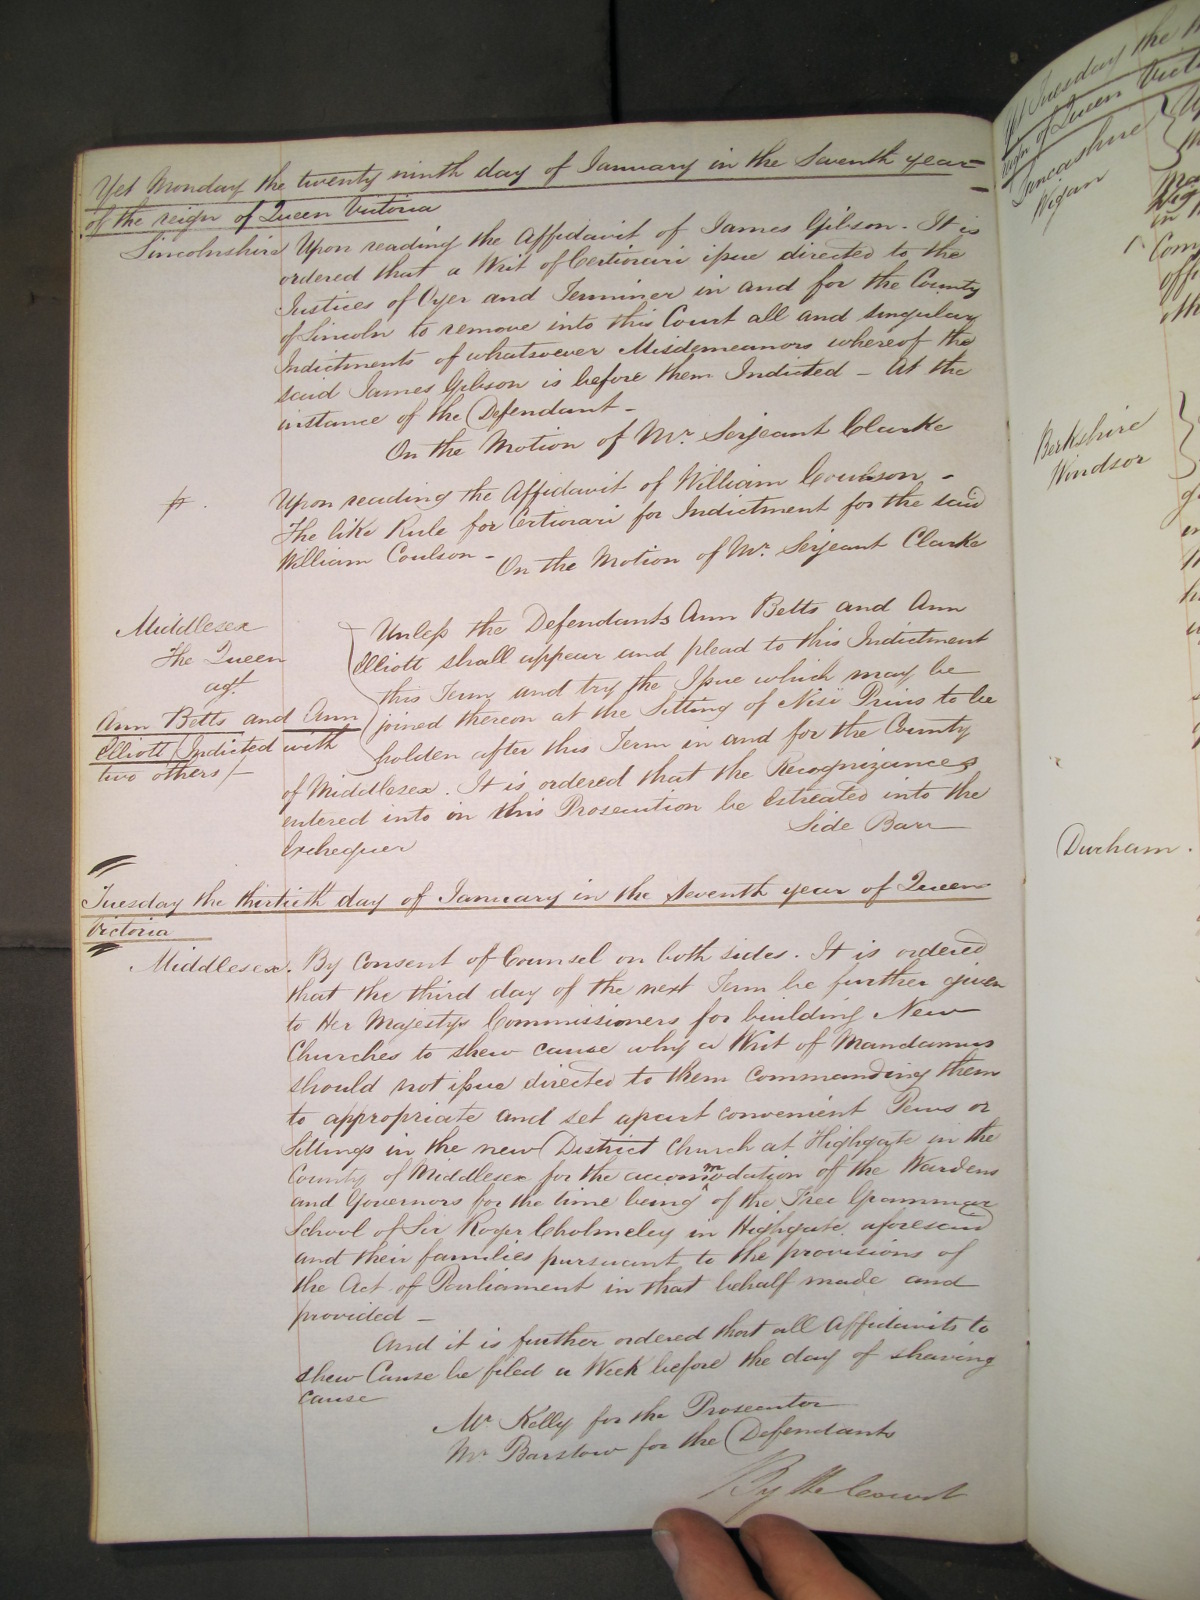 Yet Monday the twenty ninth day of January in the Seventh year
of the reign of Queen Victoria
Lincolnshire Upon reading the Affidavit of James Gibson. It is
ordered that a Writ of Certiorari issue directed to the
Justices of Oyer and Terminer in and for the County
of Lincoln to remove into this Court all and singular
Indictments of whatsoever Misdemeanors whereof the
said James Gibson is before them Indicted – At the
instance of the Defendant –
On the Motion of Mr. Serjeant Clarke
Upon reading the Affidavit of William Coulson –
The like Rule for Certiorari for Indictment for the said
William Coulson –
On the Motion of Mr. Serjeant Clarke
Middlesex
The Queen
agt.
Ann Betts and Ann
Elliott (Indicted with
two others) –
Unless the Defendants Ann Betts and Ann
Elliott shall appear and plead to this Indictment
this Term and try the Issue which may be
joined thereon at the Sitting of Nisi Prius to be
holden after this Term in and for the County
of Middlesex. It is ordered that the Recognizances
entered into in this Prosecution be Estreated into the
Exchequer
Side Barr
Tuesday the thirtieth day of January in the Seventh year of Queen
Victoria
Middlesex. By Consent of Counsel on both sides. It is ordered
that the third day of the next Term be further given
to Her Majestys Commissioners for building New
Churches to shew cause why a Writ of Mandamus
should not issue directed to them commanding them
to appropriate and set apart convenient Pews or
Sittings in the new District Church at Highgate in the
County of Middlesex for the accommodation of the Wardens
and Governors for the time being of the Free Grammar
School of Sir Roger Cholmeley in Highgate aforesaid
and their families pursuant to the provisions of
the Act of Parliament in that behalf made and
provided –
And it is further ordered that all Affidavits to
shew Cause be filed a Week before the day of shewing
cause
Mr Kelly for the Prosecutor
Mr Barstow for the Defendants
By the Court
Yet Tuesday the
reign of Queen Vict
Lancashire
Wigan
Com
Berkshire
Windsor
Durham.